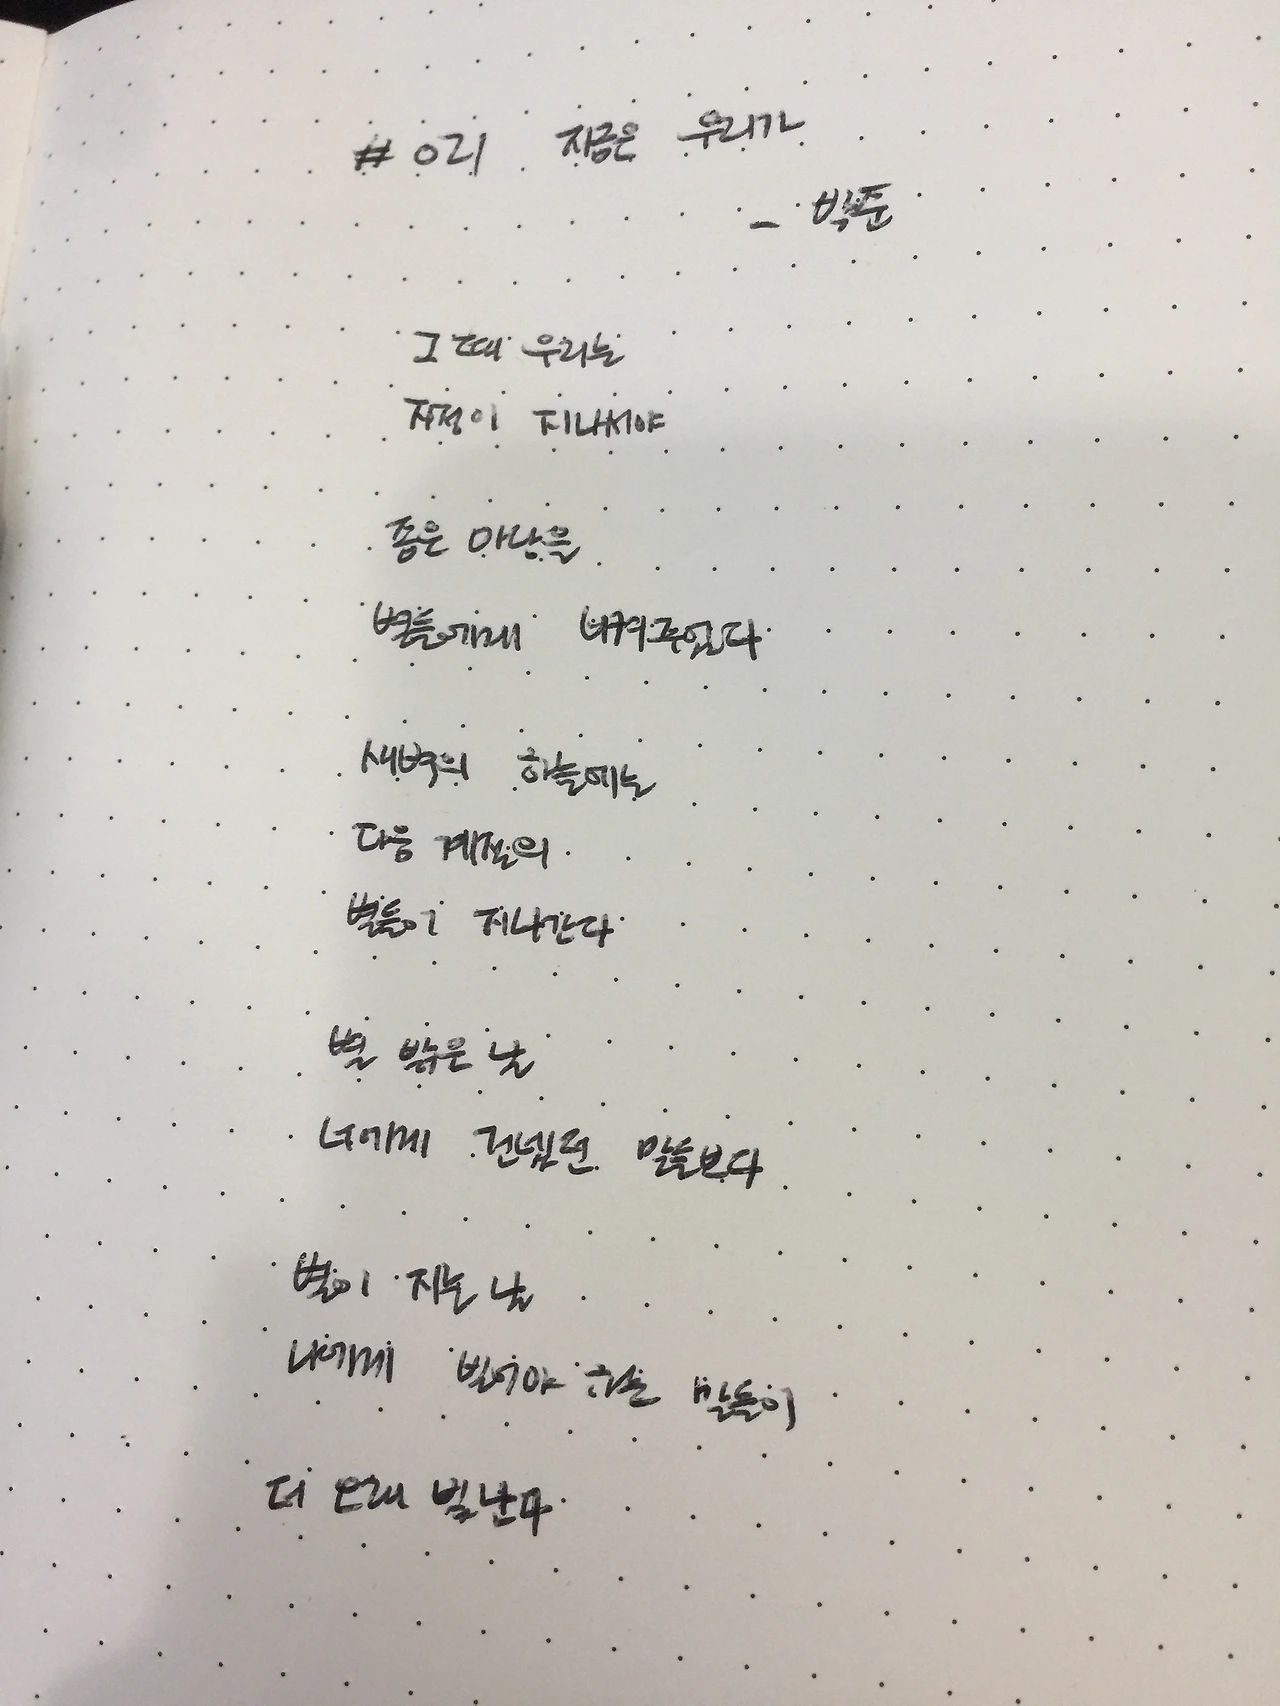 # 021 지금은 우리가
- 박준
그 때 우리는
자정이 지나서야
좁은 마당을
별들에게 비켜주었다
새벽의 하늘에는
다음 계절의
별들이 지나간다
별 밝은 날
너에게 건넸던 말들보다
별이 지는 날
나에게 빌어야 하는 말들이
더 오래 빛난다